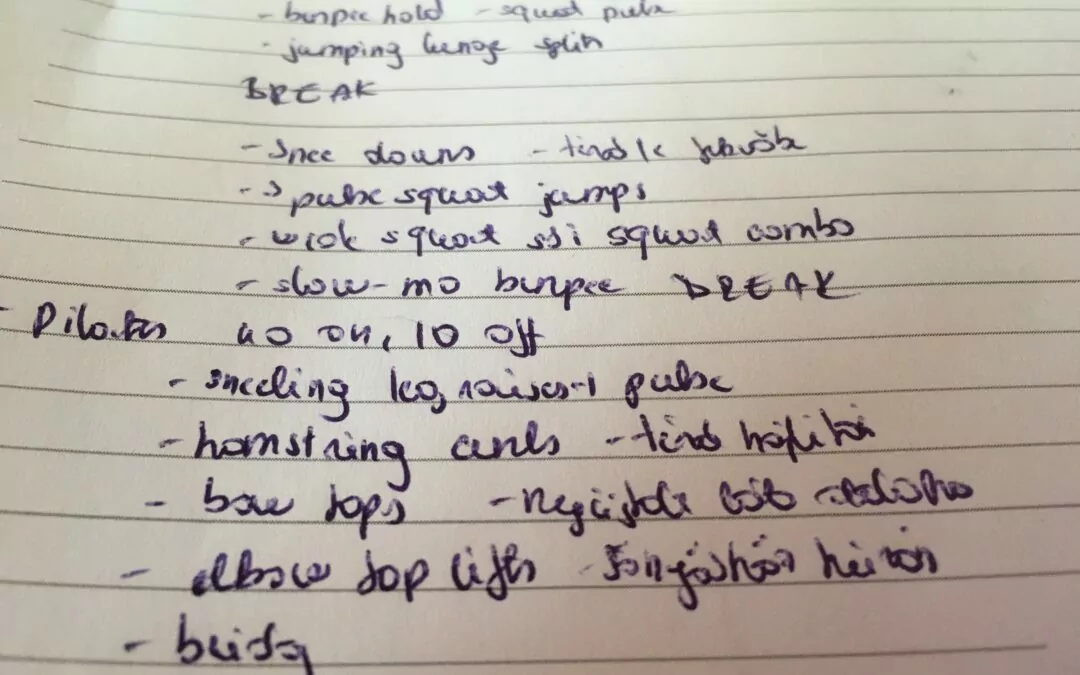 - burpee hold - squat pulse
- jumping lunge split
BREAK
- knee downs - térdle
- 3 pulse squat jumps
- wide squat ski squat combo
- slow-mo burpee BREAK
- Pilates 40 on, 10 off
- kneeling leg raises + pulse
- hamstring curls - térd
- bow taps
- elbow tap lifts
- bridg